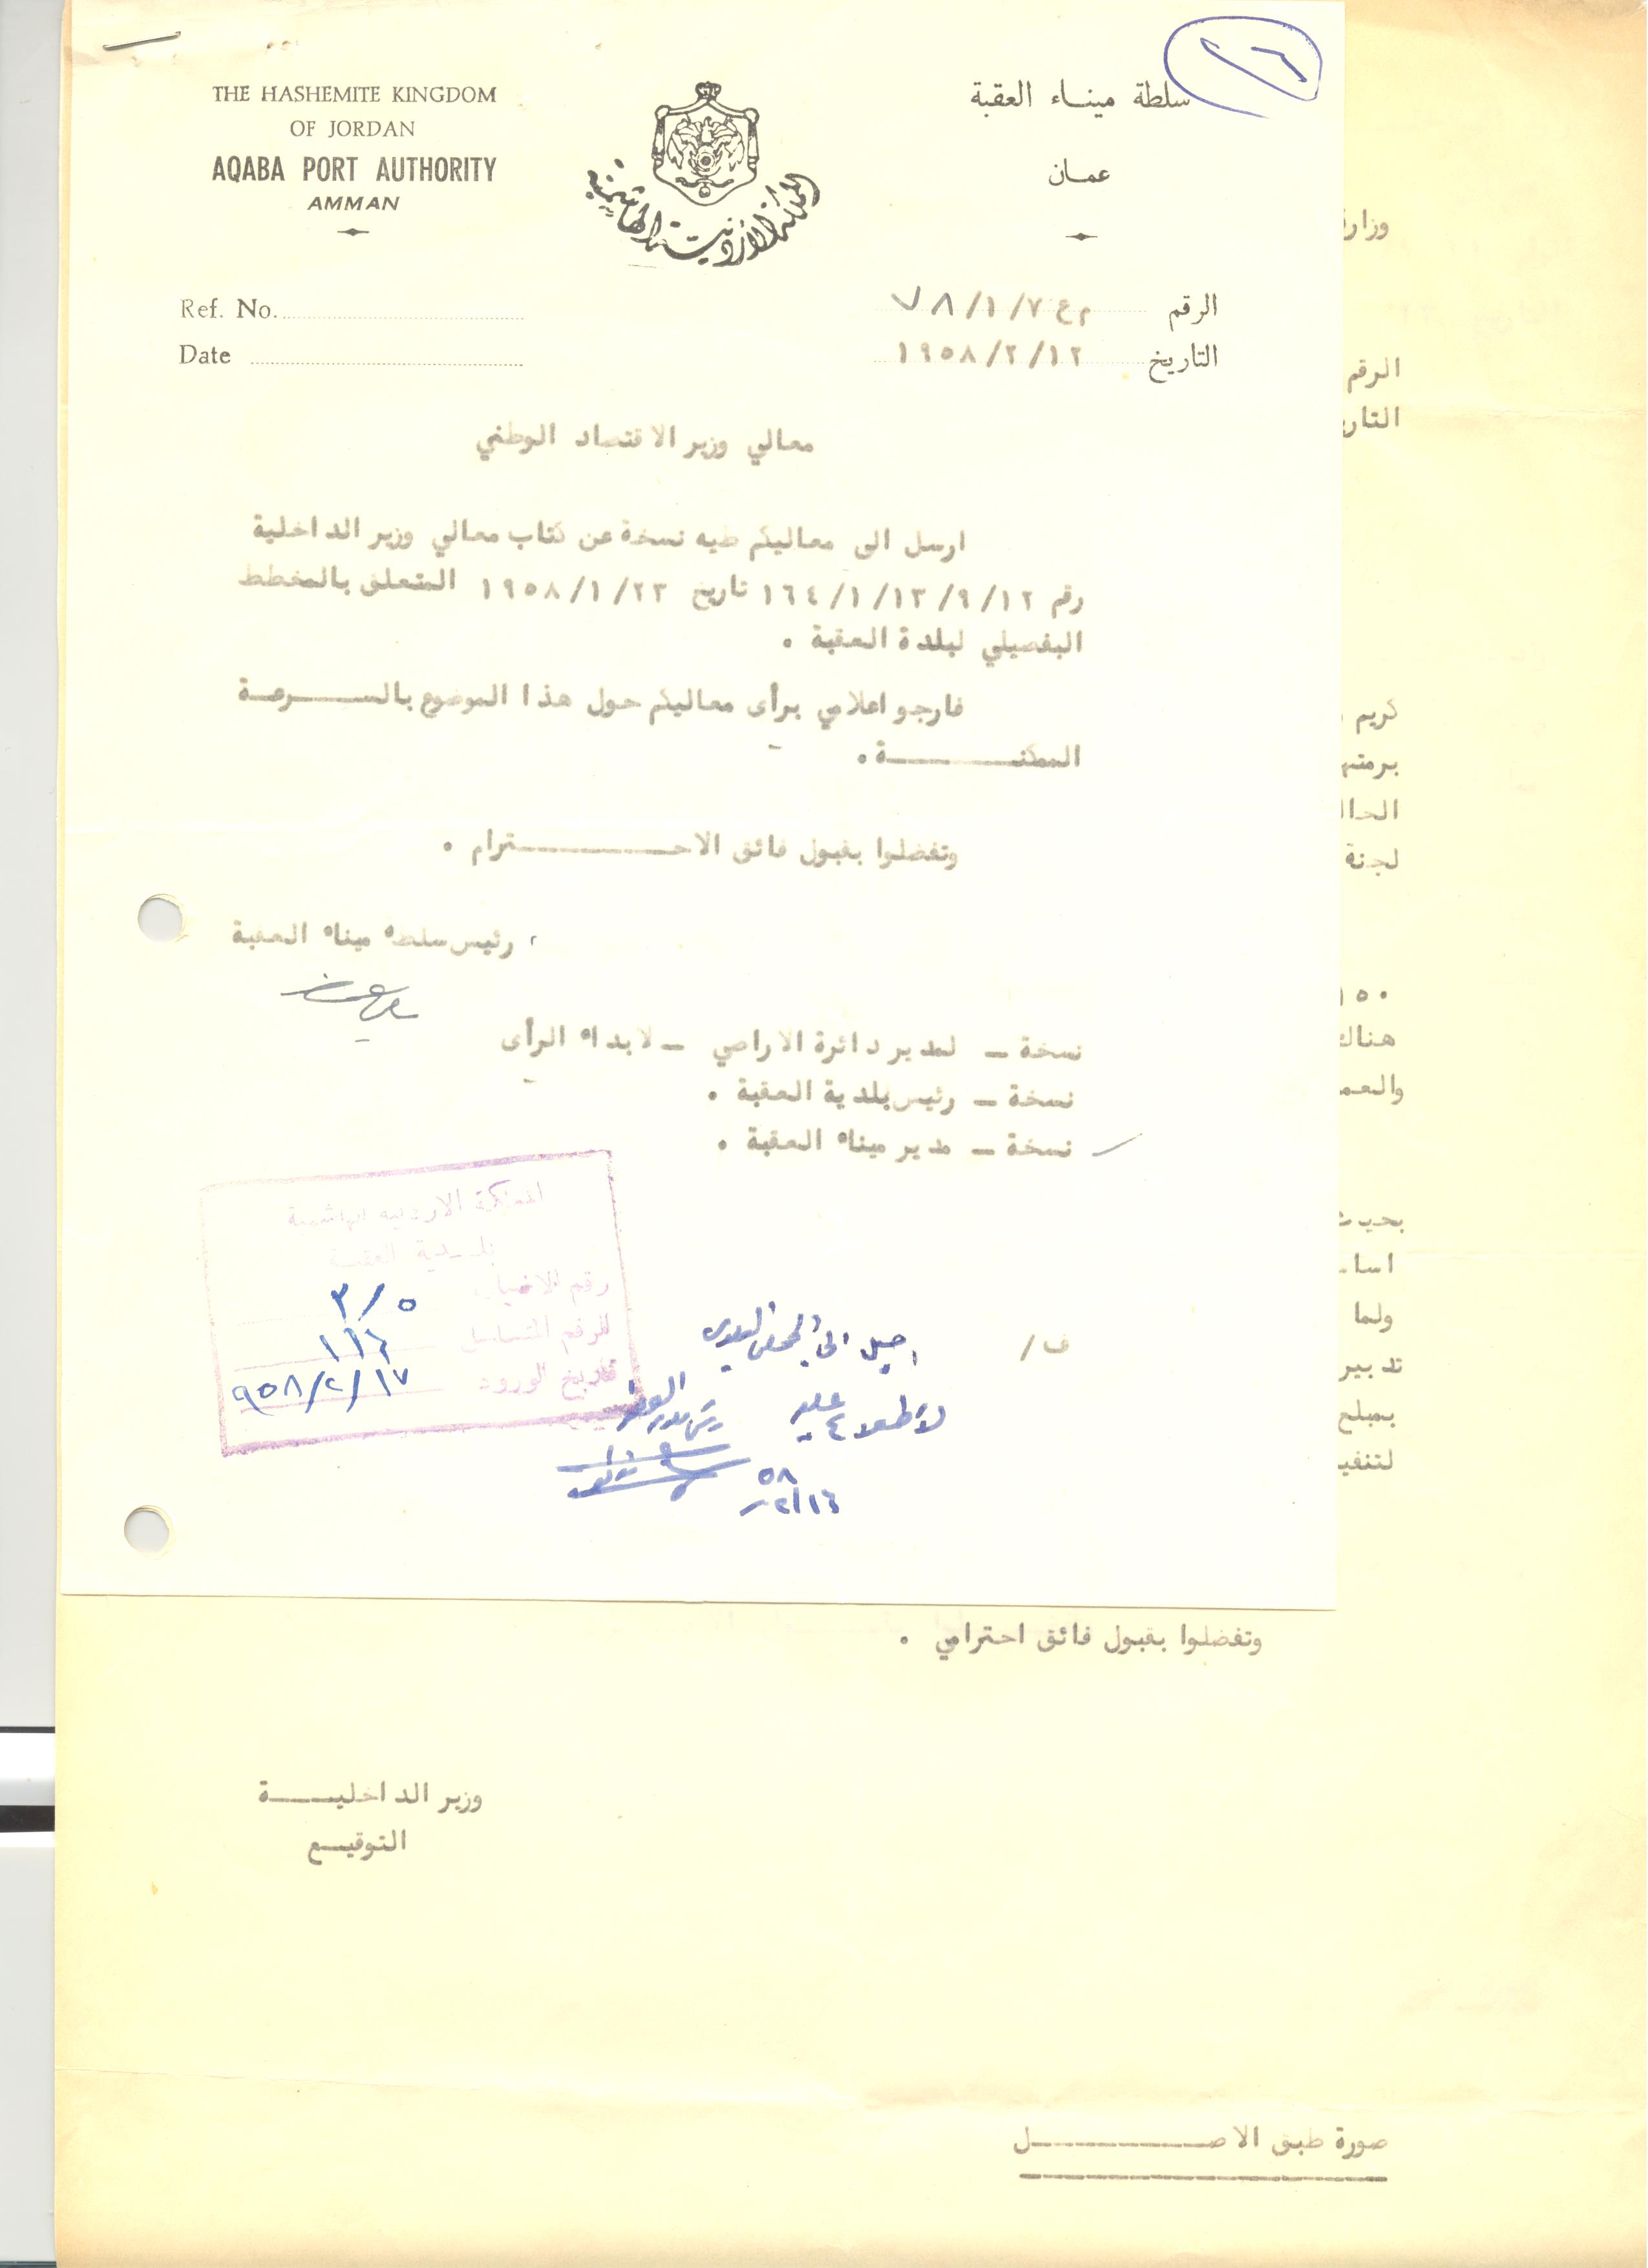 THE HASHEMITE KINGDOM
OF JORDAN
AQABA PORT AUTHORITY
AMMAN
المملكة الاردنية الهاشمية
سلطة مينـاء العقبة
عمـان
٢٦
Ref. No.
Date
الرقم م ع ٧٨/١/٧
التاريخ ١٩٥٨/٢/١٢
معالي وزير الاقتصاد الوطني
ارسل الى معاليكم طيه نسخة عن كتاب معالي وزير الداخلية
رقم ١٦٤/١/١٣/٩/١٢ تاريخ ١٩٥٨/١/٢٣ المتعلق بالمخطط
التفصيلي لبلدة العقبة .
فارجو اعلامي برأى معاليكم حول هذا الموضوع بالســـــرعـة
الممكنـــــــــة .
وتفضلوا بقبول فائق الاحــــــــــترام .
رئيس سلطة ميناء العقبة
نسخة – لمدير دائرة الاراضي – لابداء الرأى
نسخة – رئيس بلدية العقبة .
نسخة – مدير ميناء العقبة .
المملكة الاردنيه الهاشمية
بلـدية العقبـة
رقم الاضبارة ٣/٥
الرقم المتسلسل ١١٦
تاريخ الورود ٩٥٨/٢/١٧
ف/
احيل الى المجلس البلدي
للاطلاع عليه
٥٨
٢/١٦
وزار
الرقم
التار
كريم
برمته
الحا
لجنة
١٥٠
هناك
والعم
بحيث
اسا
ولما
تدبير
بمبلع
لتنفيـ
وتفضلوا بقبول فائق احترامي .
وزير الداخليـــــة
التوقيــع
صورة طبق الاصــــــــــل